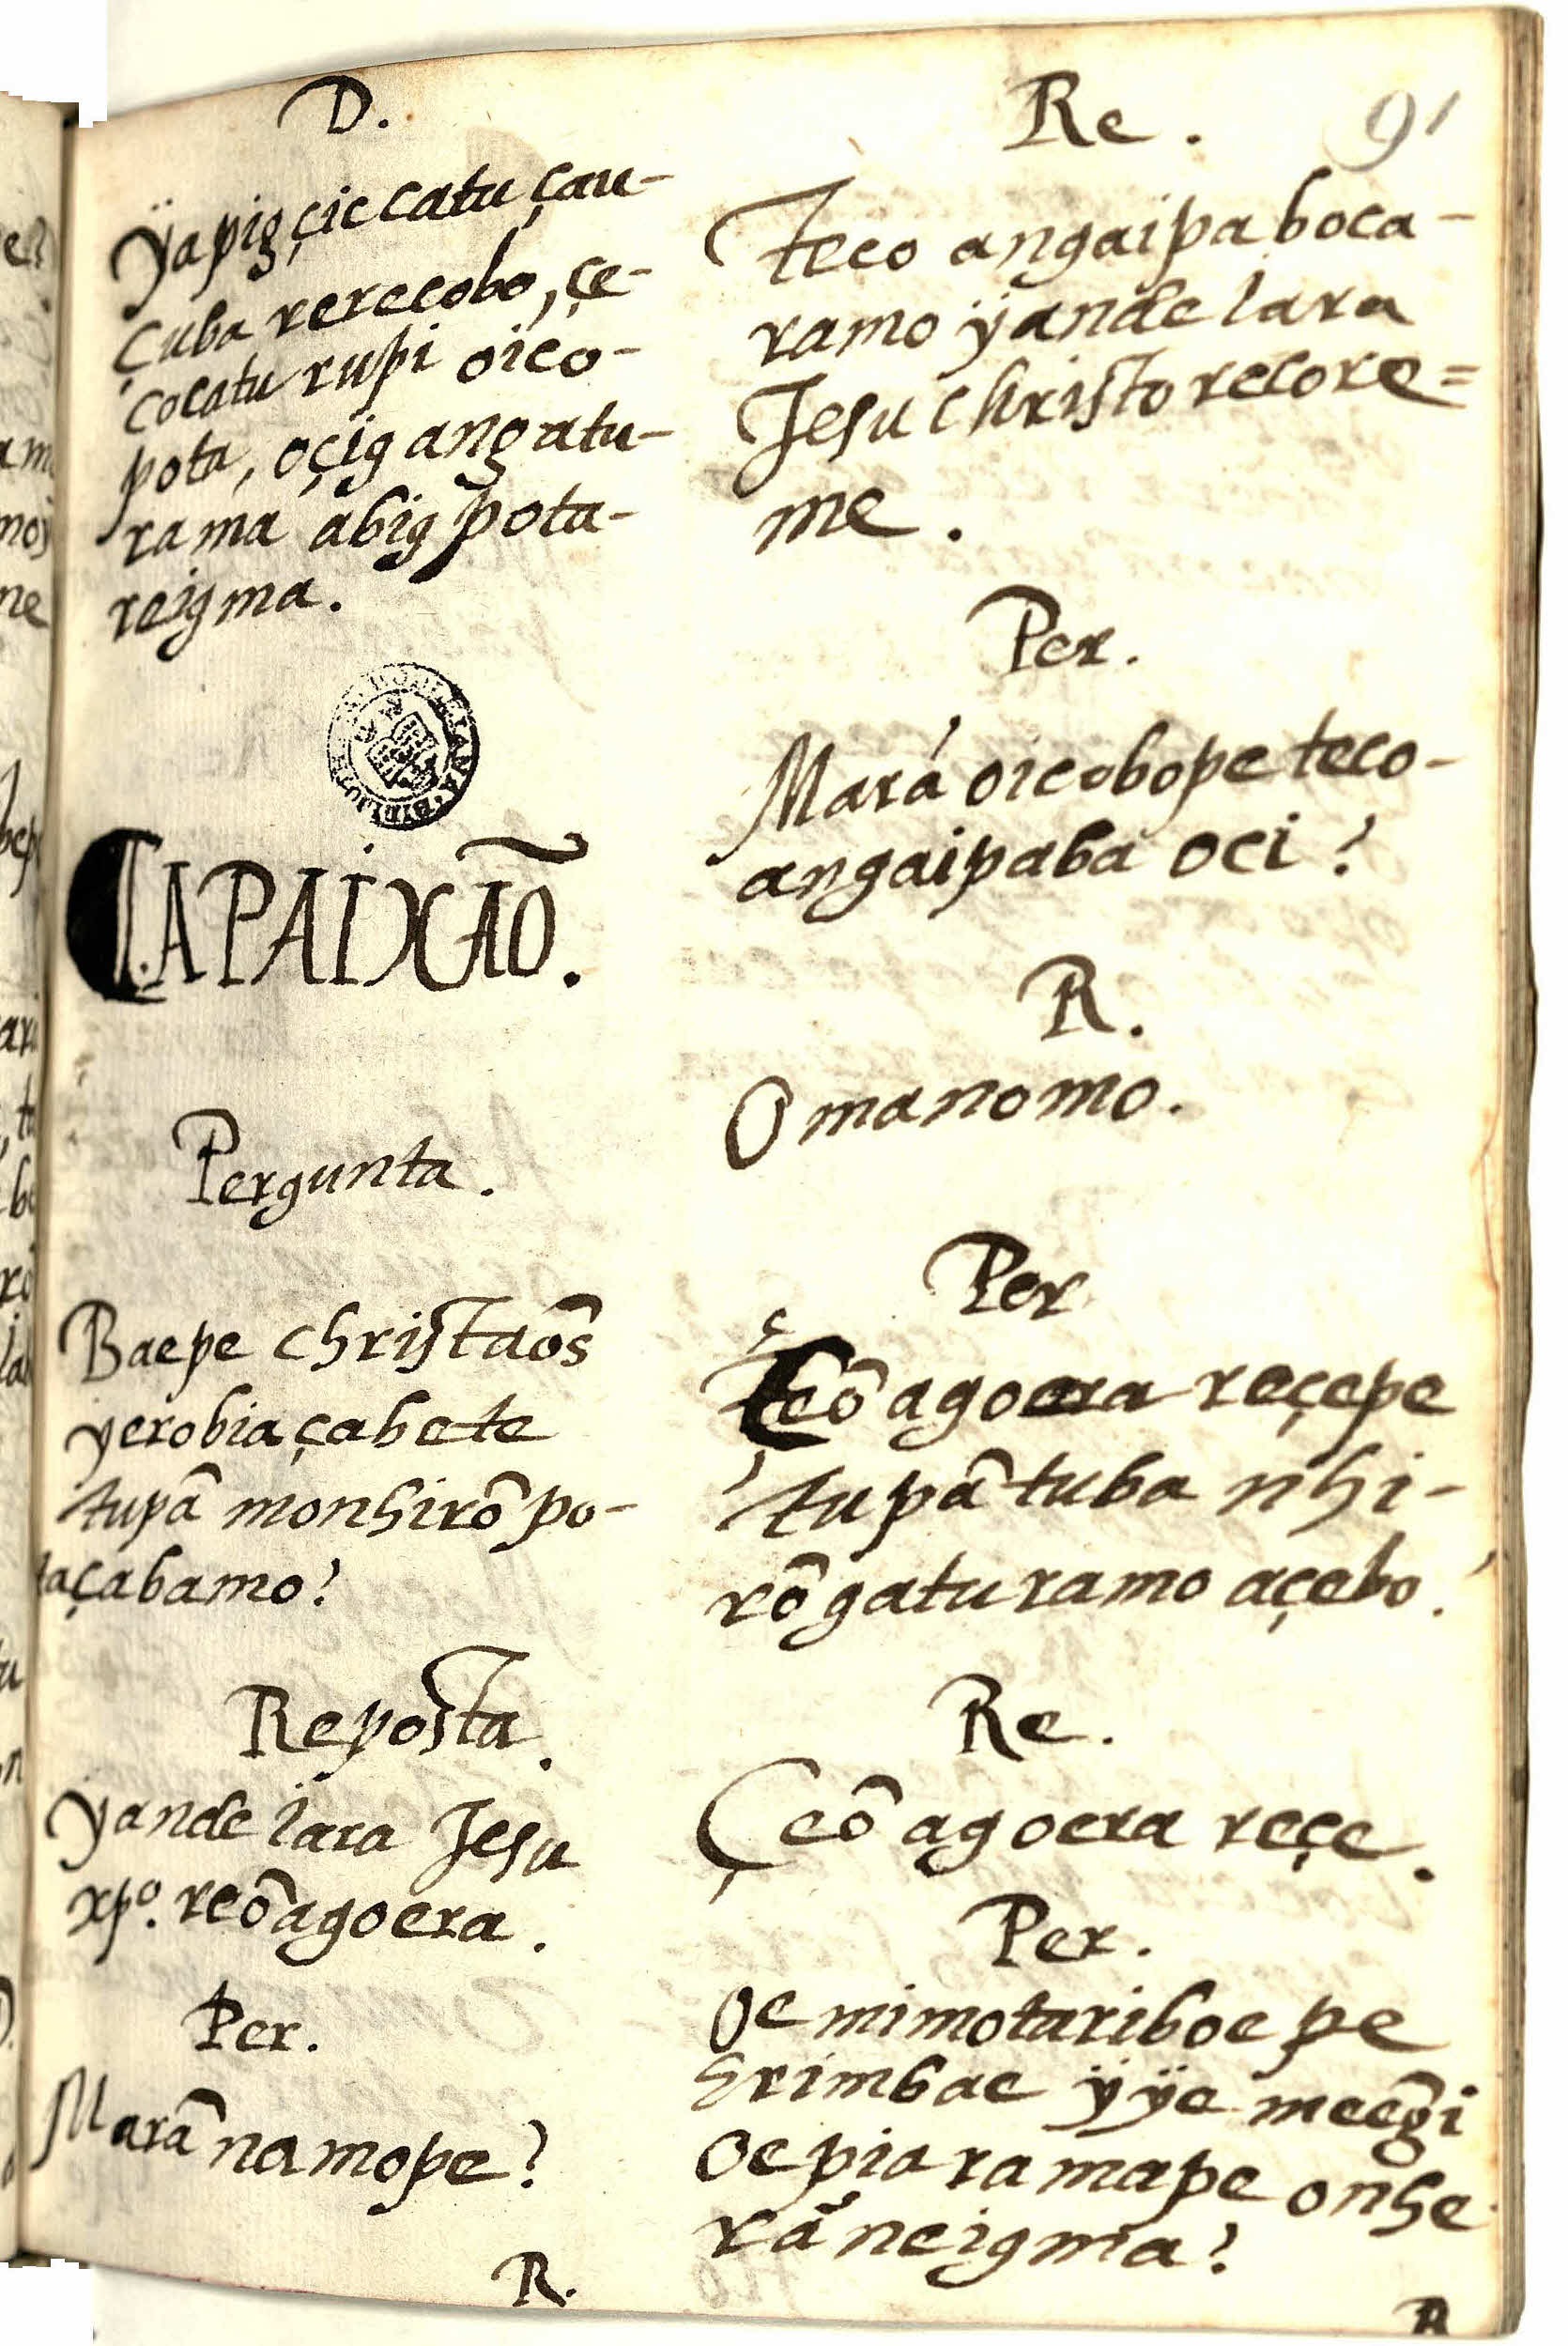 91
D.
ÿapigçic catu çau-
çuba rerecobo, çe-
cocatu rupi oico-
pota, oçig angatu-
rama abig pota-
reigma.
DA PAIXAÕ.
Pergunta.
Baepe christaõs
yerobiaçabete
tupã monhirõ po-
taçabamo?
Reposta.
yande Iara Jesu
xpo. reõagoera.
Per.
Marã namope?
R.
Re.
Teco angaipaboca-
ramo ÿande Iara
Jesu christo recore=
me.
Per.
Mará oicobope teco-
angaipaba oci?
R.
Omanomo.
Per
Çeõagoera reçepe
tupã tuba nhi-
rõgaturamo açebo?
Re.
Çeõagoera reçe.
Per.
Oemimotariboe pe
erimbae ÿÿe meẽgi
oepiaramape onhe
rãneigma?
R